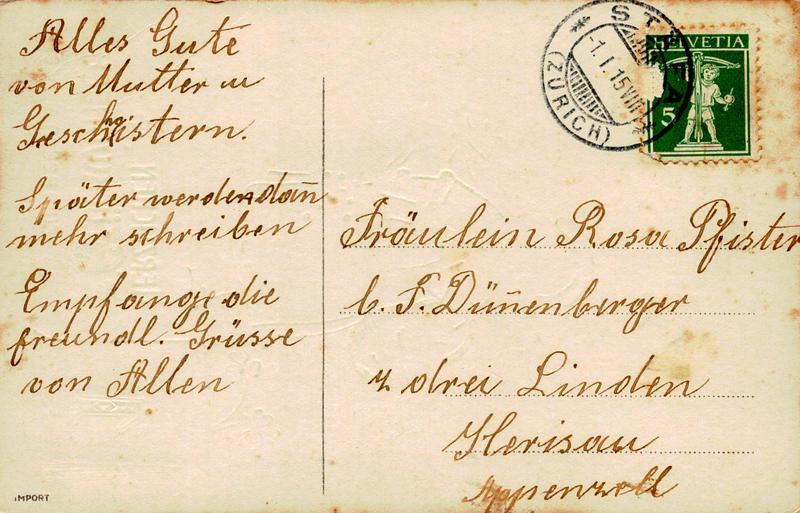 Alles Gute
von Mutter u
Geschwistern.
Später werden dañ
mehr schreiben
Empfange die
freundl. Grüsse
von Allen
IMPORT
STÄFA
(ZÜRICH)
-1.I.15.VIII
HELVETIA
5
Fräulein Rosa Pfister
b. F. Düñenberger
z drei Linden
Herisau
Appenzell